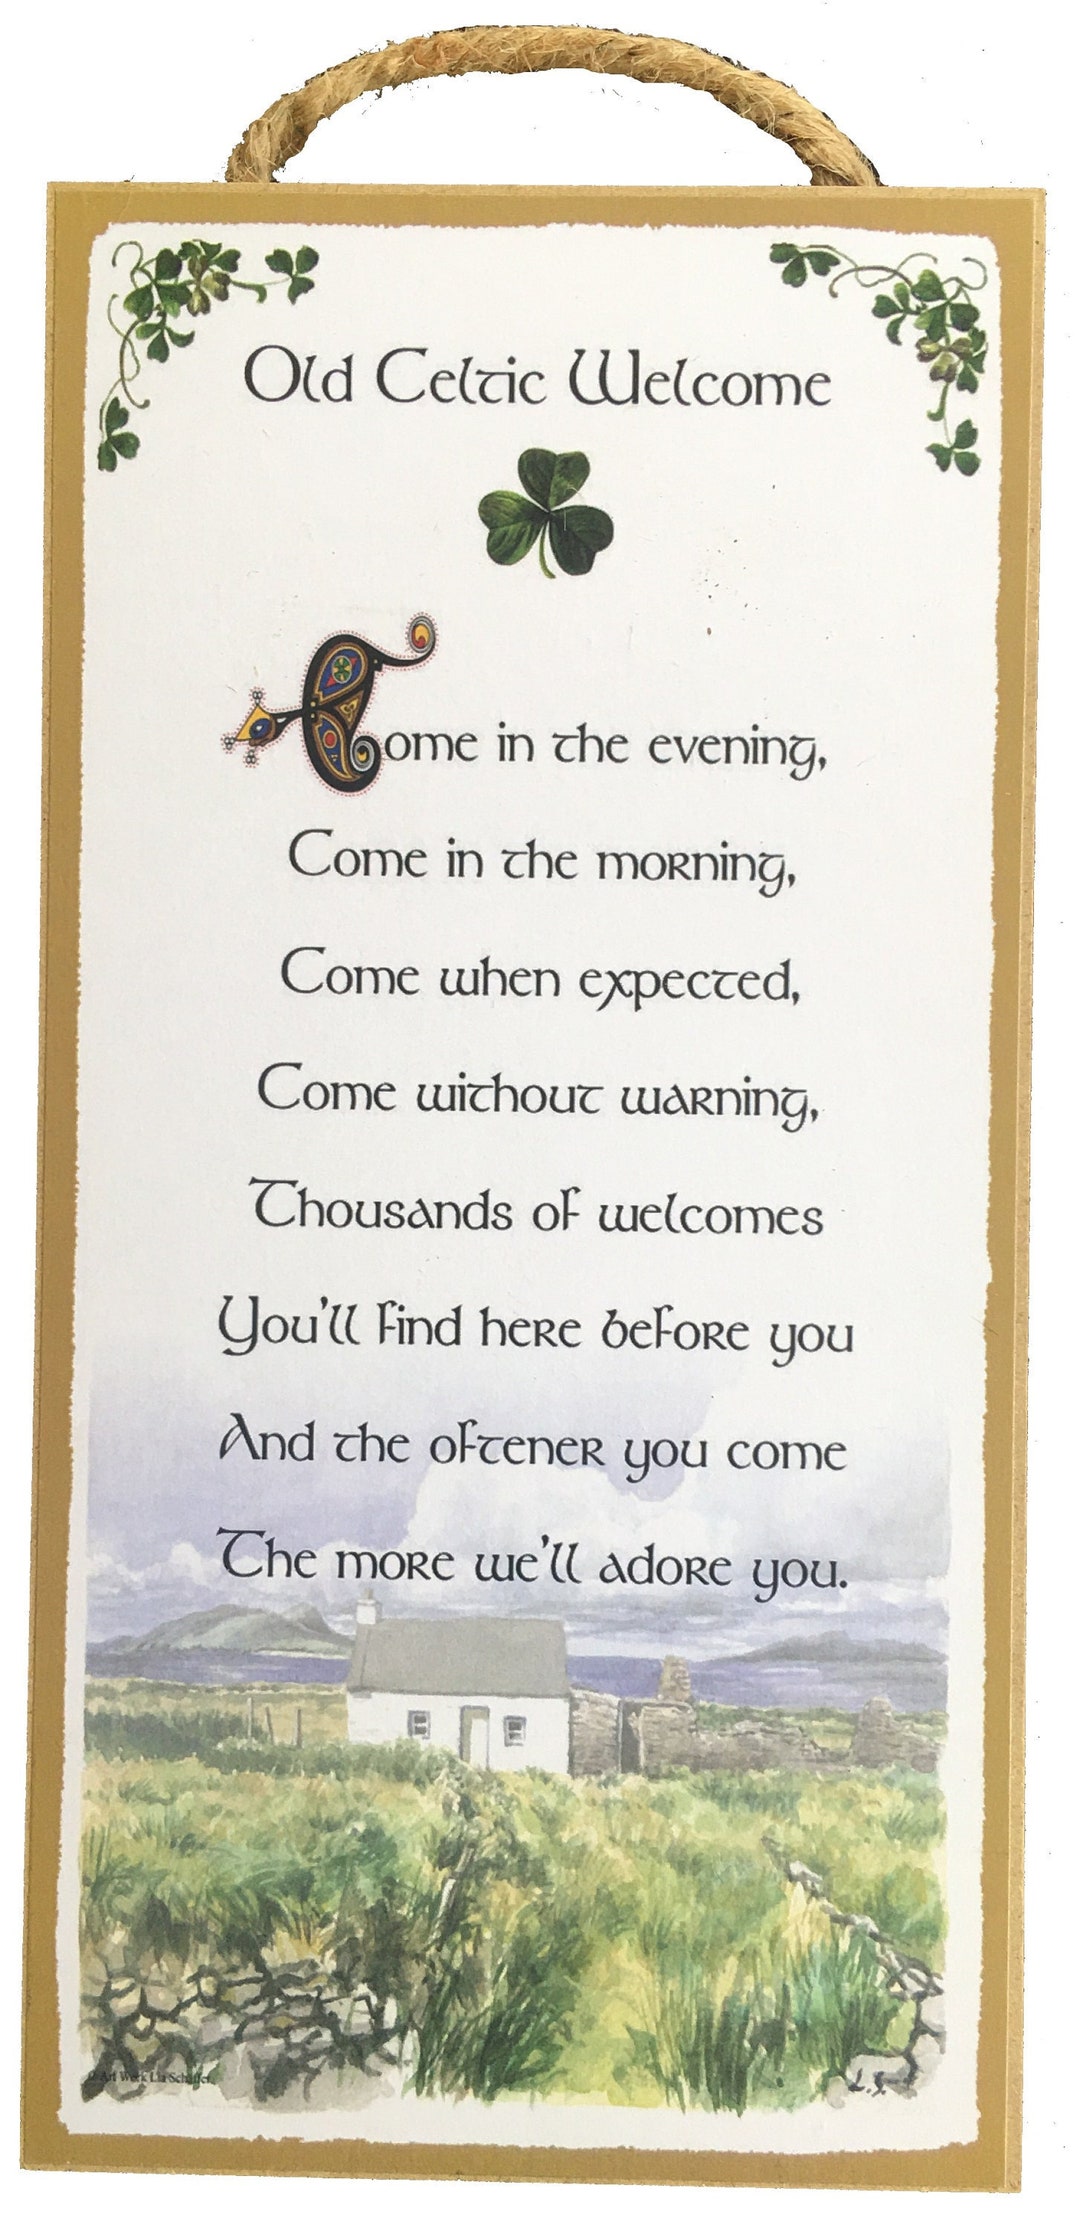 Old Celtic Welcome
Come in the evening,
Come in the morning,
Come when expected,
Come without warning,
Thousands of welcomes
You'll find here before you
And the oftener you come
The more we'll adore you.
© Art Work Lia Schaffer.
L.S.